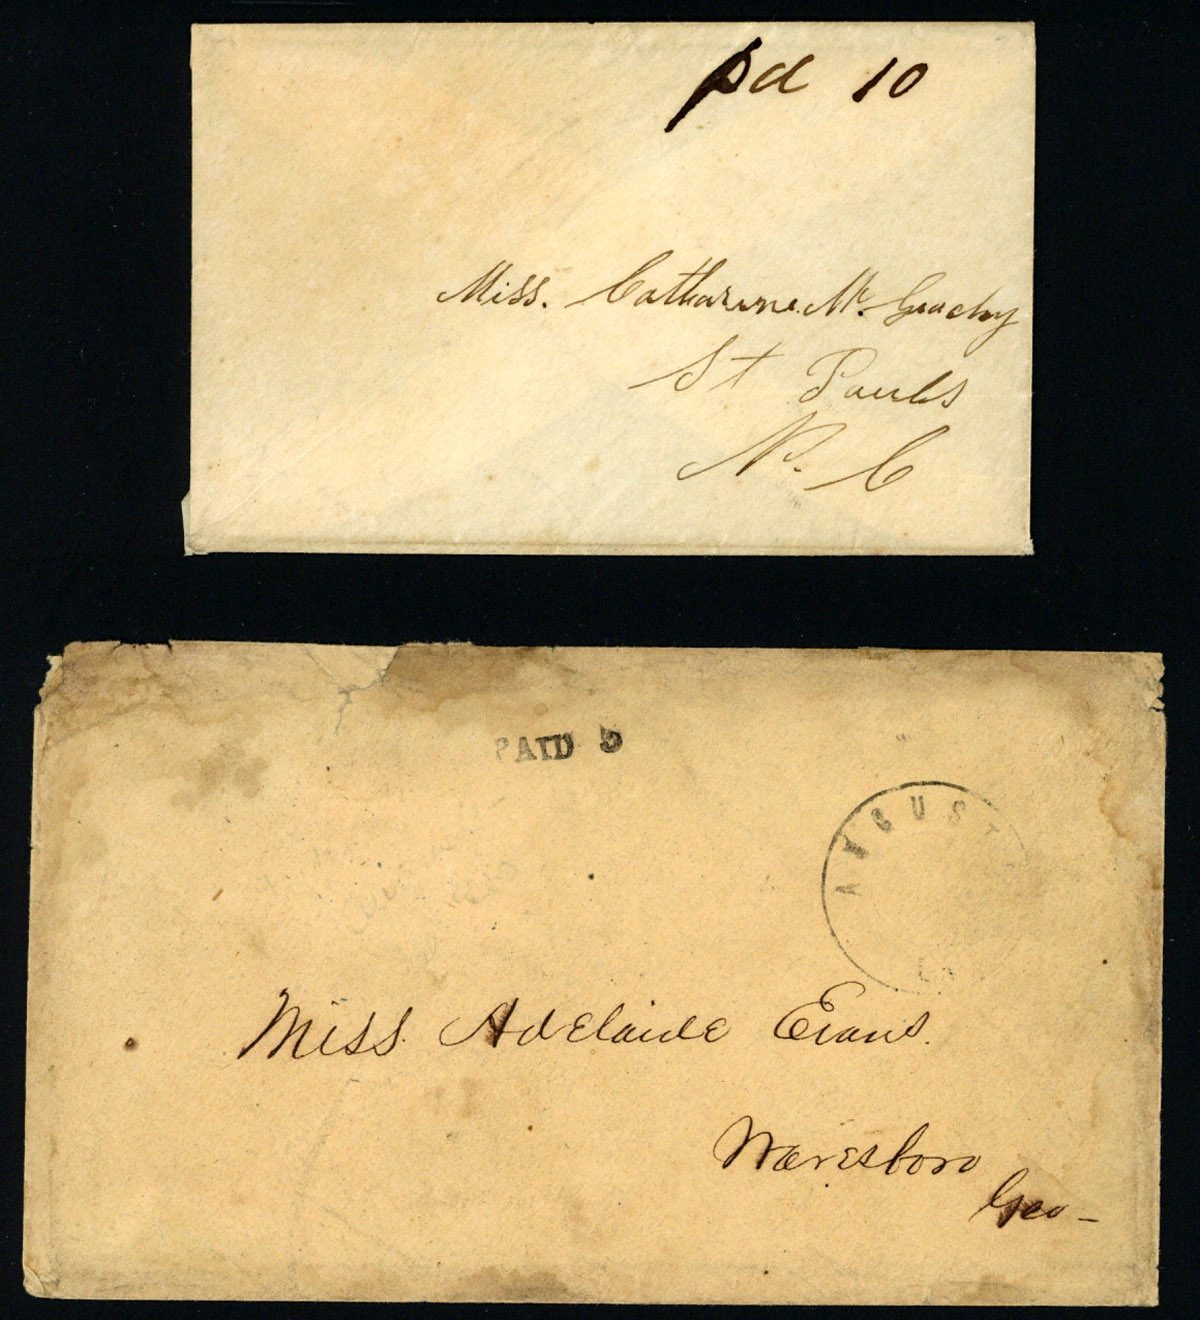 pd 10
Miss. Catharine Mc Geachy
St Pauls
N. C
PAID 5
AUGUST
Ga
Miss Adelaide Evans.
Waresboro
Geo-